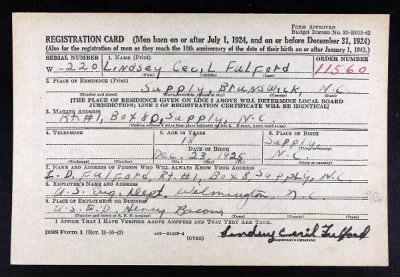 FORM APPROVED
REGISTRATION CARD (Men born on or after July 1, 1924, and on or before December 31, 1924)
(Also for the registration of men as they reach the 18th anniversary of the date of their birth on or after January 1, 1943.)
SERIAL NUMBER 1. NAME (Print) ORDER NUMBER
W-220 Lindsey Cecil Fulford 11560
2. PLACE OF RESIDENCE (Print)
Supply, Brunswick, N.C
(THE PLACE OF RESIDENCE GIVEN ON LINE 2 ABOVE WILL DETERMINE LOCAL BOARD
JURISDICTION; LINE 2 OF REGISTRATION CERTIFICATE WILL BE IDENTICAL)
3. MAILING ADDRESS
Rt.#1, Box 80, Supply, N.C
4. TELEPHONE 5. AGE IN YEARS 6. PLACE OF BIRTH
18 Supply,
DATE OF BIRTH
Dec. 23, 1925 N.C
7. NAME AND ADDRESS OF PERSON WHO WILL ALWAYS KNOW YOUR ADDRESS
Fulford, Rt.#1, Box 8, Supply, N.C
8. EMPLOYER'S NAME AND ADDRESS
U.S. Eng. Dept. Wilmington, N.C
9. PLACE OF EMPLOYMENT OR BUSINESS
U.S.E.D. Henry Bacon
I AFFIRM THAT I HAVE VERIFIED ABOVE ANSWERS AND THAT THEY ARE TRUE.
DSS Form 1 (OVER) Lindsey Cecil Fulford
(Registrant's signature)